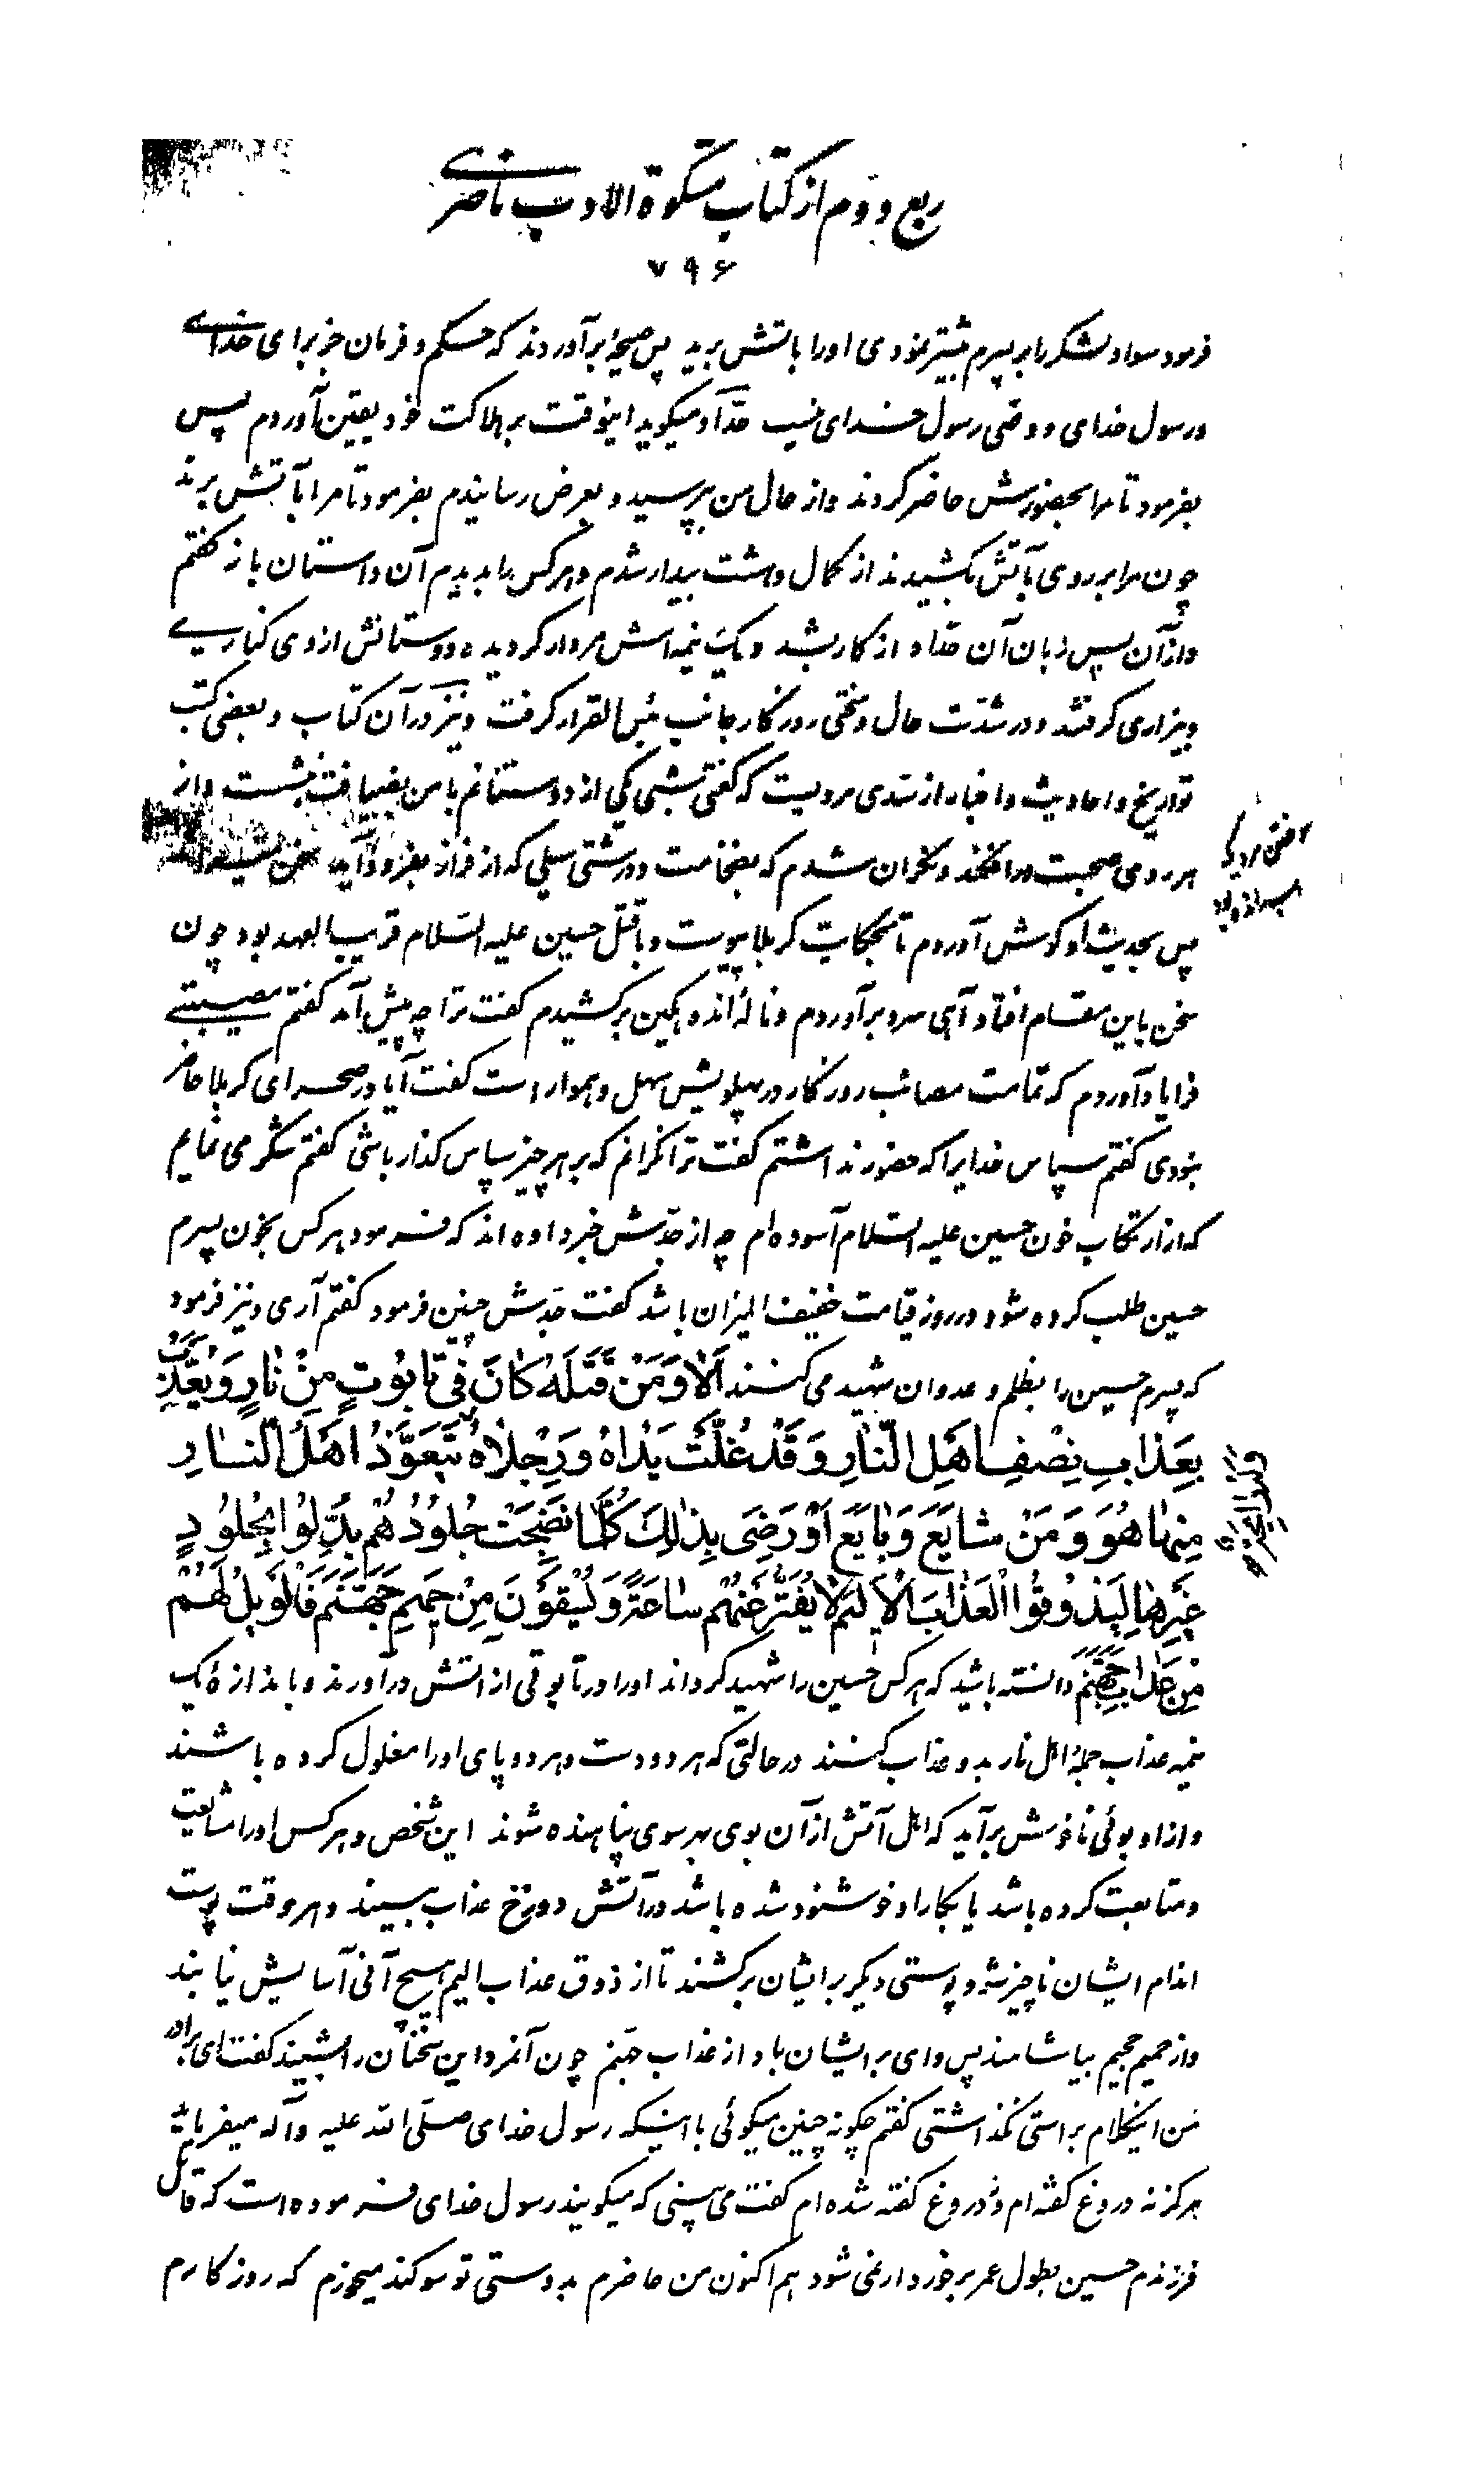 ربع دوم از کتاب مشکوة الادب ناصری
۷۹۶
فرمود سواد لشکر را بر پسرم بیشتر نمودی اورا باتش برید پس صیحه برآوردند که حکم و فرمان جز برای خدای
و رسول خدای و وصی رسول خدای نیست حداد میگوید اینوقت بر هلاکت خود یقین آوردم پس
بفرمود تا مرا بحضورش حاضر کردند و از حال من بپرسید و بعرض رسانیدم بفرمود تا مرا بآتش برند
چون مرا بر روی بآتش بکشیدند از کمال وحشت بیدار شدم و هر کس را بدیدم آن داستان باز گفتم
و از آن پس زبان آن حداد از کار بشد و یک نیمه اش مردار گردیده دوستانش از وی کناری
و بیزاری گرفتند و در شدت حال و سختی روزگار بجانب بئس القرار گرفت و نیز در آن کتاب و بعضی کتب
تواریخ و احادیث و اخبار از سدی مرویست که گفتی شبی یکی از دوستانم با من بضیافت بنشست و از
هر روی صحبت در افکند و نگران شدم که بضخامت و درشتی سیلی که از فراز بفرود آید سخن
پس بحدیث او گوش آوردم تا بحکایت کربلا پیوست و با قتل حسین علیه السلام قریب العهد بود چون
سخن باین مقام افتاد آهی سرد برآوردم و ناله اندوهگین برکشیدم گفت ترا چه پیش آمد گفتم مصیبتی
فرا یاد آوردم که تمامت مصائب روزگار در پهلویش سهل و هموار است گفت آیا در صحرای کربلا حاضر
بودی گفتم سپاس خدایرا که حضور نداشتم گفت ترا نگرانم که بر هر چیز سپاس گذار باشی گفتم شکر می نمایم
که از ارتکاب خون حسین علیه السلام آسوده ام چه از جدش خبر داده اند که فرمود هر کس بخون پسرم
حسین طلب کرده شود در روز قیامت خفیف المیزان باشد گفت جدش چنین فرمود گفتم آری و نیز فرمود
که پسرم حسین را بظلم و عدوان شهید می کنند اَلا وَمَنْ قَتَلَهُ کانَ فی تابُوتٍ مِنْ نارٍ وَیُعَذَّبُ
بِعَذابِ نِصْفِ اَهْلِ النّارِ وَقَدْ غُلَّتْ یَداهُ وَرِجْلاهُ یَتَعَوَّذُ اَهْلُ النّارِ
مِنها هُوَ وَمَنْ شایَعَ وَبایَعَ اَوْ رَضِیَ بِذلِکَ کُلَّما نَضِجَتْ جُلُودُهُمْ بُدِّلُوا بِجُلُودٍ
غَیْرِها لِیَذُوقُوا الْعَذابَ الْاَلیمَ لا یُفَتَّرُ عَنْهُمْ ساعَةً وَیُسْقَوْنَ مِنْ حَمیمِ جَهَنَّمَ فَالْوَیْلُ لَهُمْ
مِنْ عَذابِ جَهَنَّمَ دانسته باشید که هر کس حسین را شهید گرداند اورا در تابوتی از آتش درآورند و باندازه یک
نیمه عذاب جمله اهل نار بدو عذاب کنند در حالتی که هر دو دست و هر دو پای اورا مغلول کرده باشند
و از او بوئی ناخوش برآید که اهل آتش از آن بوی بهر سوی پناهنده شوند این شخص و هر کس اورا مشایعت
و متابعت کرده باشد یا بکار او خوشنود شده باشد در آتش دوزخ عذاب ببینند و هر وقت پوست
اندام ایشان ناچیز شود پوستی دیگر بر ایشان برکشند تا از ذوق عذاب الیم هیچ آنی آسایش نیابند
و از حمیم جحیم بیاشامند پس وای بر ایشان باد از عذاب جهنم چون آنمرد این سخنان را بشنید گفت ای برادر
من اینکلام براستی نگذاشتی گفتم چگونه چنین میگوئی با اینکه رسول خدای صلی الله علیه وآله میفرماید
هرگز نه دروغ گفته ام و نه دروغ گفته شده ام گفت می بینی که میگویند رسول خدای فرموده است که قاتل
فرزندم حسین بطول عمر برخوردار نمی شود هم اکنون من حاضرم بدوستی تو سوگند میخورم که روزگارم